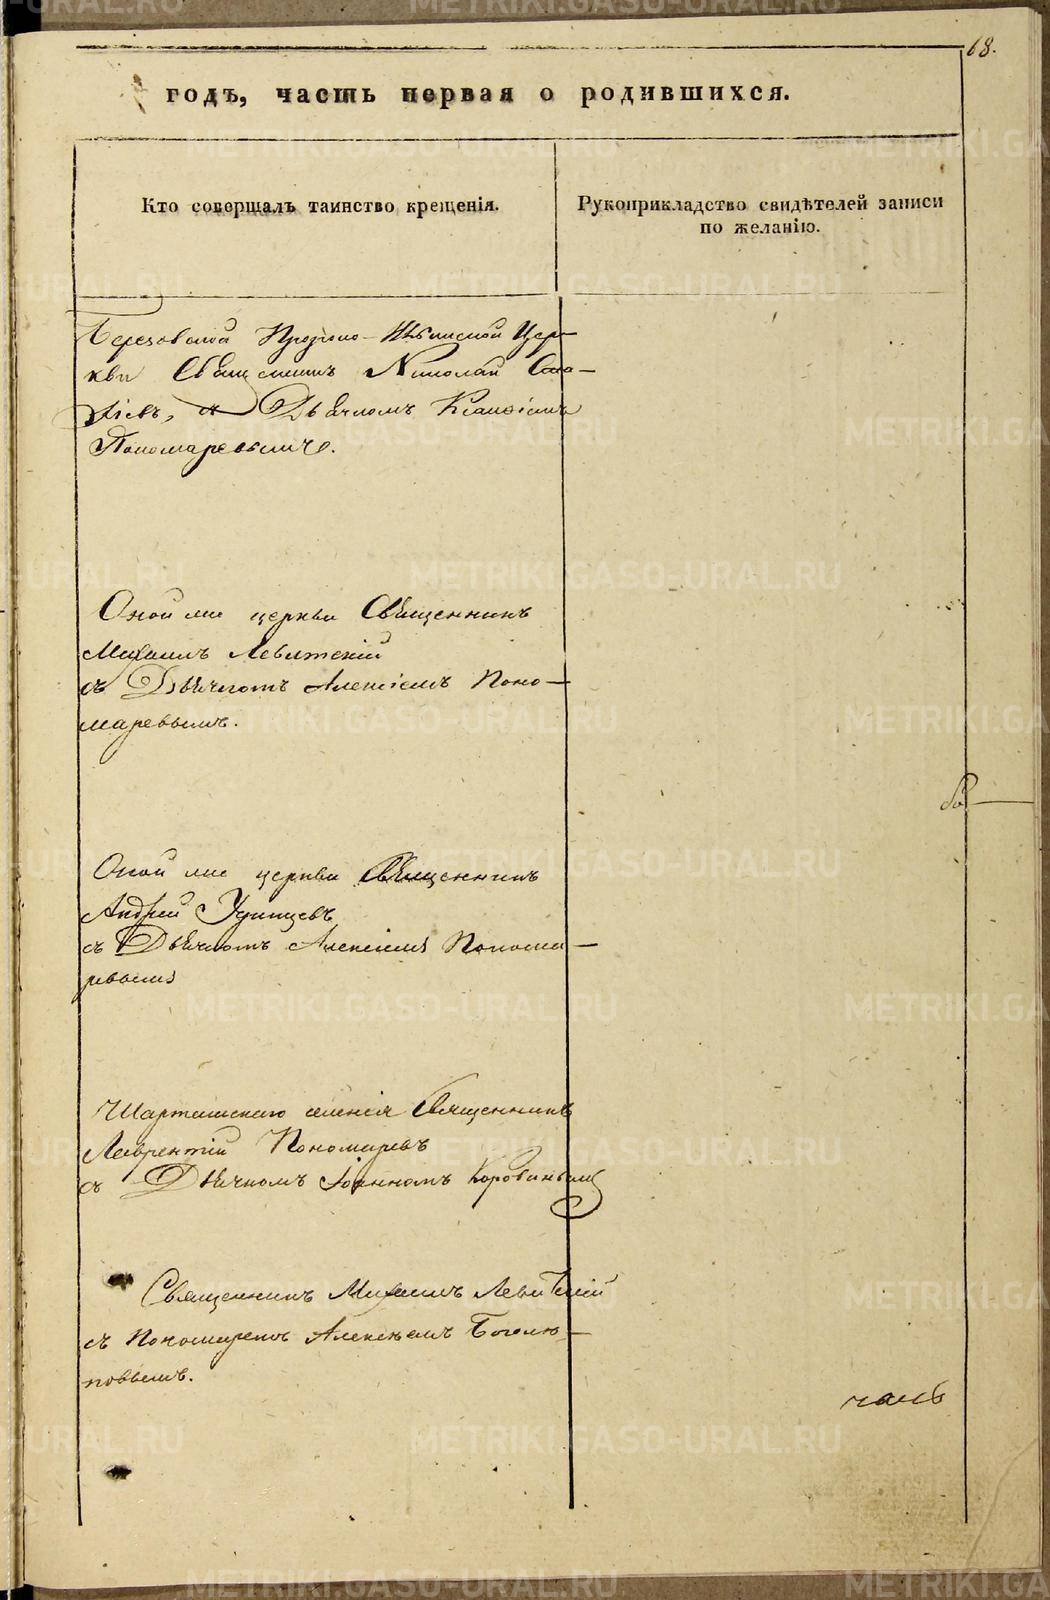 68.
годъ, часть первая о родившихся.
Кто совершалъ таинство крещенія.
Рукоприкладство свидѣтелей записи
по желанію.
Березовской Пророко-Ильинской Цер-
кви Священникъ Николай
съ Дьячкомъ
Пономаревымъ.
Оной же церкви Священникъ
Михаилъ Левитскій
съ Дьячкомъ Алексіемъ Поно-
маревымъ.
Оной же церкви Священникъ
Андрей Удинцевъ
съ Дьячкомъ Алексіемъ Понома-
ревымъ
Шарташскаго селенія Священникъ
Лаврентій Пономаревъ
съ Дьячкомъ Іоанномъ Коровинымъ
Священникъ Михаилъ Левитскій
съ Пономаремъ Алексѣемъ Боголю-
повымъ.
часть
METRIKI.GASO-URAL.RU